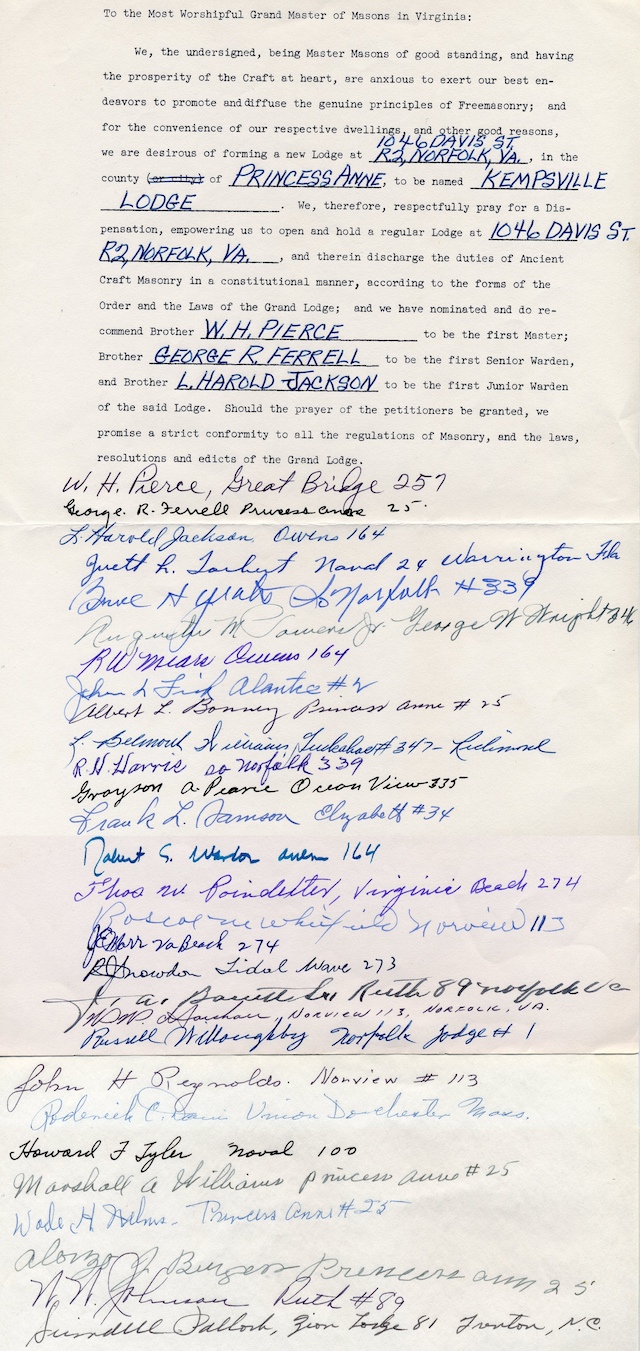 To the Most Worshipful Grand Master of Masons in Virginia:
We, the undersigned, being Master Masons of good standing, and having
the prosperity of the Craft at heart, are anxious to exert our best en-
deavors to promote and diffuse the genuine principles of Freemasonry; and
for the convenience of our respective dwellings, and other good reasons,
1046 DAVIS ST.
we are desirous of forming a new Lodge at R2, NORFOLK, VA., in the
county (or city) of PRINCESS ANNE, to be named KEMPSVILLE
LODGE. We, therefore, respectfully pray for a Dis-
pensation, empowering us to open and hold a regular Lodge at 1046 DAVIS ST.
R2, NORFOLK, VA., and therein discharge the duties of Ancient
Craft Masonry in a constitutional manner, according to the forms of the
Order and the Laws of the Grand Lodge; and we have nominated and do re-
commend Brother W. H. PIERCE to be the first Master;
Brother GEORGE R. FERRELL to be the first Senior Warden,
and Brother L. HAROLD JACKSON to be the first Junior Warden
of the said Lodge. Should the prayer of the petitioners be granted, we
promise a strict conformity to all the regulations of Masonry, and the laws,
resolutions and edicts of the Grand Lodge.
W. H. Pierce, Great Bridge 257
George. R. Ferrell Princess anne 25.
L. Harold Jackson. Owens 164
Naval 24 Warrington Fla
So Norfolk #339
Augustus M Towers Jr. George W Wright 346
RW Mears Owens 164
John L Fisk Alantic #2
Albert L. Bonney Princess Anne # 25
L. Belmont Williams, Tuckahoe #347- Richmond
R. H. Harris So Norfolk 339
Grayson a Pearce Ocean View 335
Frank L. Samson Elizabeth #34
Robert S. Owens 164
Thos W Poindexter, Virginia Beach 274
Roscoe m Whitfield Norview 113
Va Beach 274
Snowdon Tidal Wave 273
Ruth 89 Norfolk Va
NORVIEW 113, NORFOLK, VA.
Russell Willoughby Norfolk Lodge # 1
John H Reynolds. Norview # 113
Roderick C. Union Dorchester Mass.
Howard F Tyler Naval 100
Marshall a Williams Princess anne #25
Wade H. Helms- Princess Anne #25
Alonzo J. Burgess Princess ann 25
W. W. Johnson Ruth #89
Zion Lodge 81 Trenton, N.C.